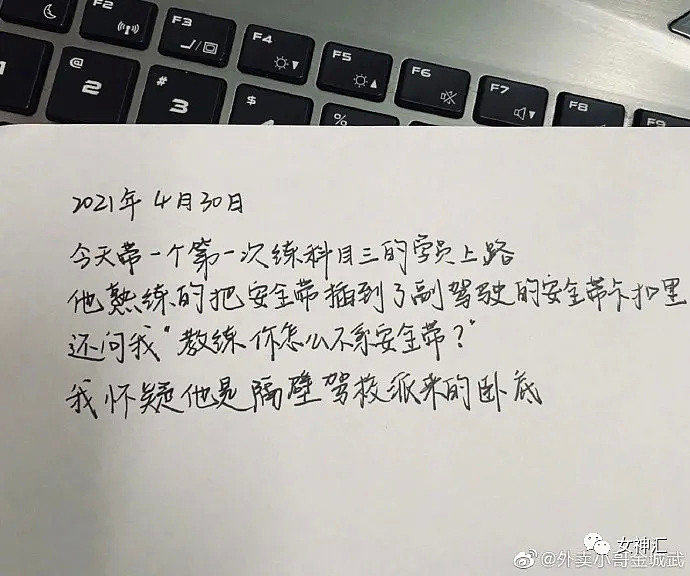 F2
F3
F4
F5
F6
F7
F8
F9
@
2
#
3
$
%
2021年4月30日
今天带一个第一次练科目三的学员上路
他熟练的把安全带插到了副驾驶的安全带卡扣里
还问我“教练你怎么不系安全带？”
我怀疑他是隔壁驾校派来的卧底
女神汇
@外卖小哥金城武